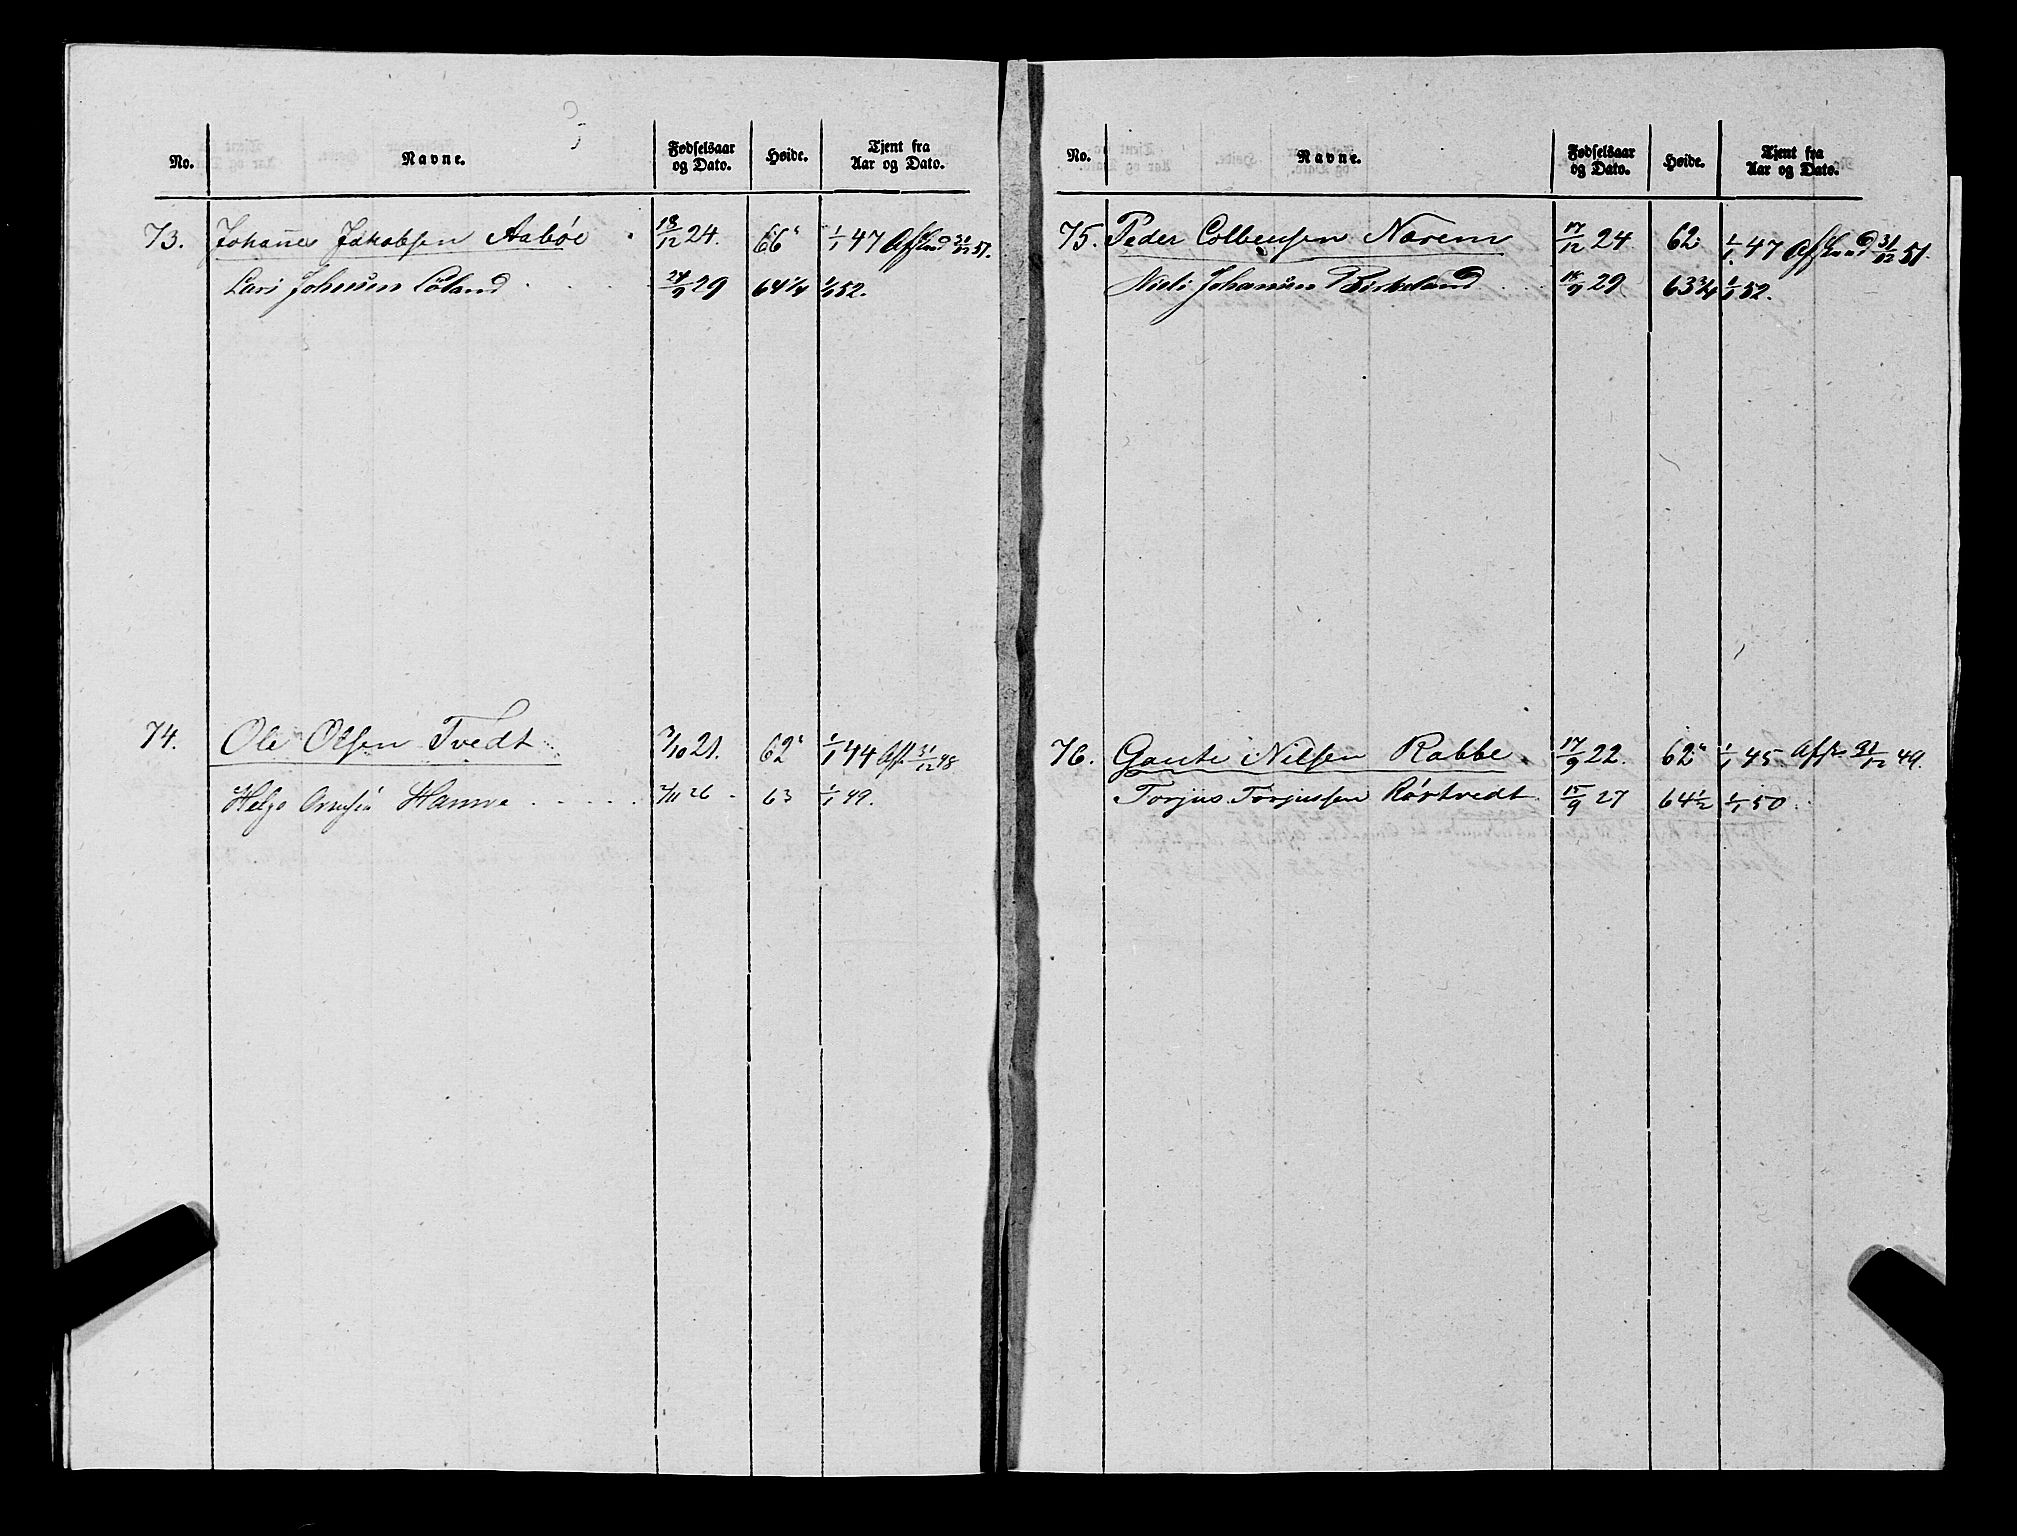 No. Navne. Fødselsaar og Dato. Høide. Tjent fra Aar og Dato.
73. Johanes Jakobsen Aabøe 13/12 24. 66" 1/1 47 Afskund 31/12 51.
Lars Løland 29 64 1/4 1/1 52.
74. Ole Olsen Tvedt 7/10 21. 62" 1/1 44 Afsk. 31/12 48
Helge Hamre 7/11 26 63 1/1 49.
No. Navne. Fødselsaar og Dato. Høide. Tjent fra Aar og Dato.
75. Peder Colbensen Narem 17/12 24 62 1/1 47 31/12 51.
Niels Johansen Birkeland 29 63 3/4 1/1 52.
76. Gaute Nilsen Rabbe. 17/9 22. 62" 1/1 45 31/12 49.
Torjus Torjussen Rörtvedt 15/9 27 64 1/2 1/1 50